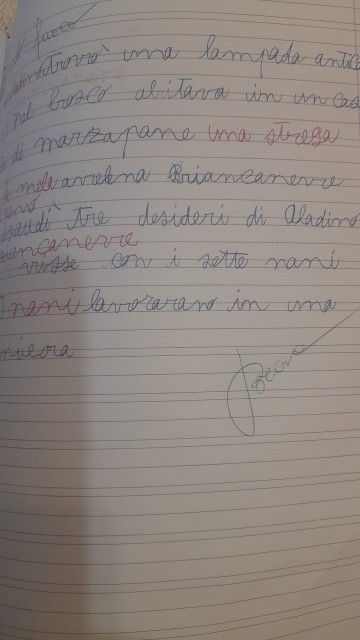 trovò una lampada antica
nel bosco abitava in un cas
di marzapane una strega
mela avvelena Biancaneve
esaudì tre desideri di Aladino
biancaneve
visse con i sette nani
I nani lavoravano in una
miniera